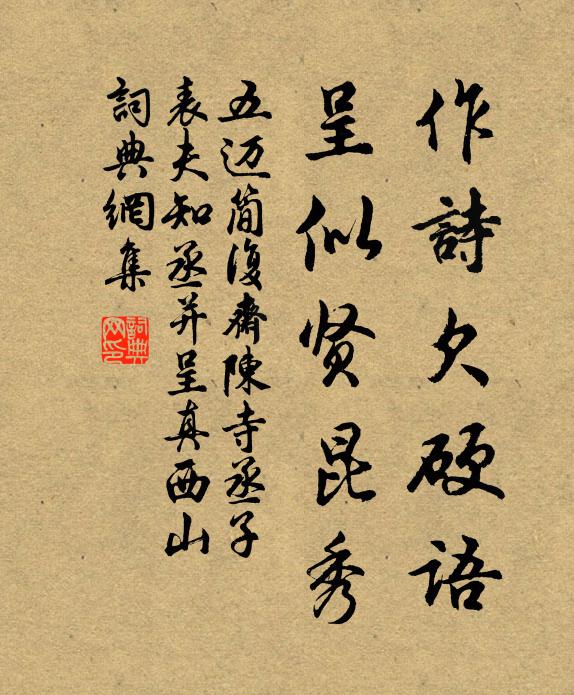 作詩欠硬语
呈似贤昆秀
五迈简復齋陳寺丞子
表夫知丞并呈真西山
詞典網集
詞典网印